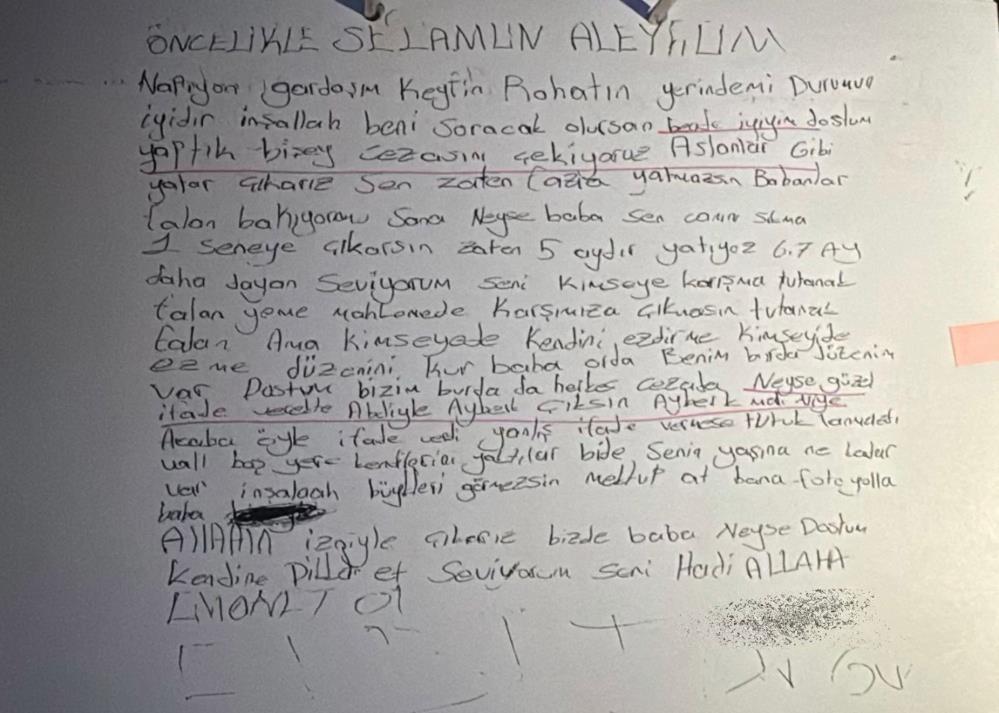 ÖNCELİKLE SELAMUN ALEYKUM
Napıyon gardaşım Keyfin Rohatın yerindemi Durumuv
iyidir inşallah beni soracak olursan bende iyiyim dostum
yaptık bizey cezasını çekiyoruz Aslanlar Gibi
yatar çıkarız Sen zaten fazla yatmazsın Babanlar
falan bakıyorum Sana Neyse baba sen canın sıkma
1 seneye çıkarsın zaten 5 aydır yatıyoz 6.7 AY
daha dayan Seviyorum seni Kimseye karışma tutanak
falan yeme mahkemede Karşımıza çıkmasın tutanak
falan Ama kimseyede Kendini ezdirme Kimseyide
ezme düzenini kur baba orda Benim burda düzenim
var Dostum bizim burda da herkes cezada Neyse güzel
ifade verekte Abdiyle Ayberk Çıksın Ayberk niye
Acaba öyle ifade verdi yanlış ifade vermese tutuklanmazdı
vall boş yere kendilerini yaktılar bide Senin yaşına ne kadar
var inşalaah büyükleri görmezsin mektup at bana foto yolla
baba
AllAHIN izniyle çıkarız bizde baba Neyse Dostum
Kendine Dikkat et Seviyorum seni Hadi ALLAHA
EMONET Ol